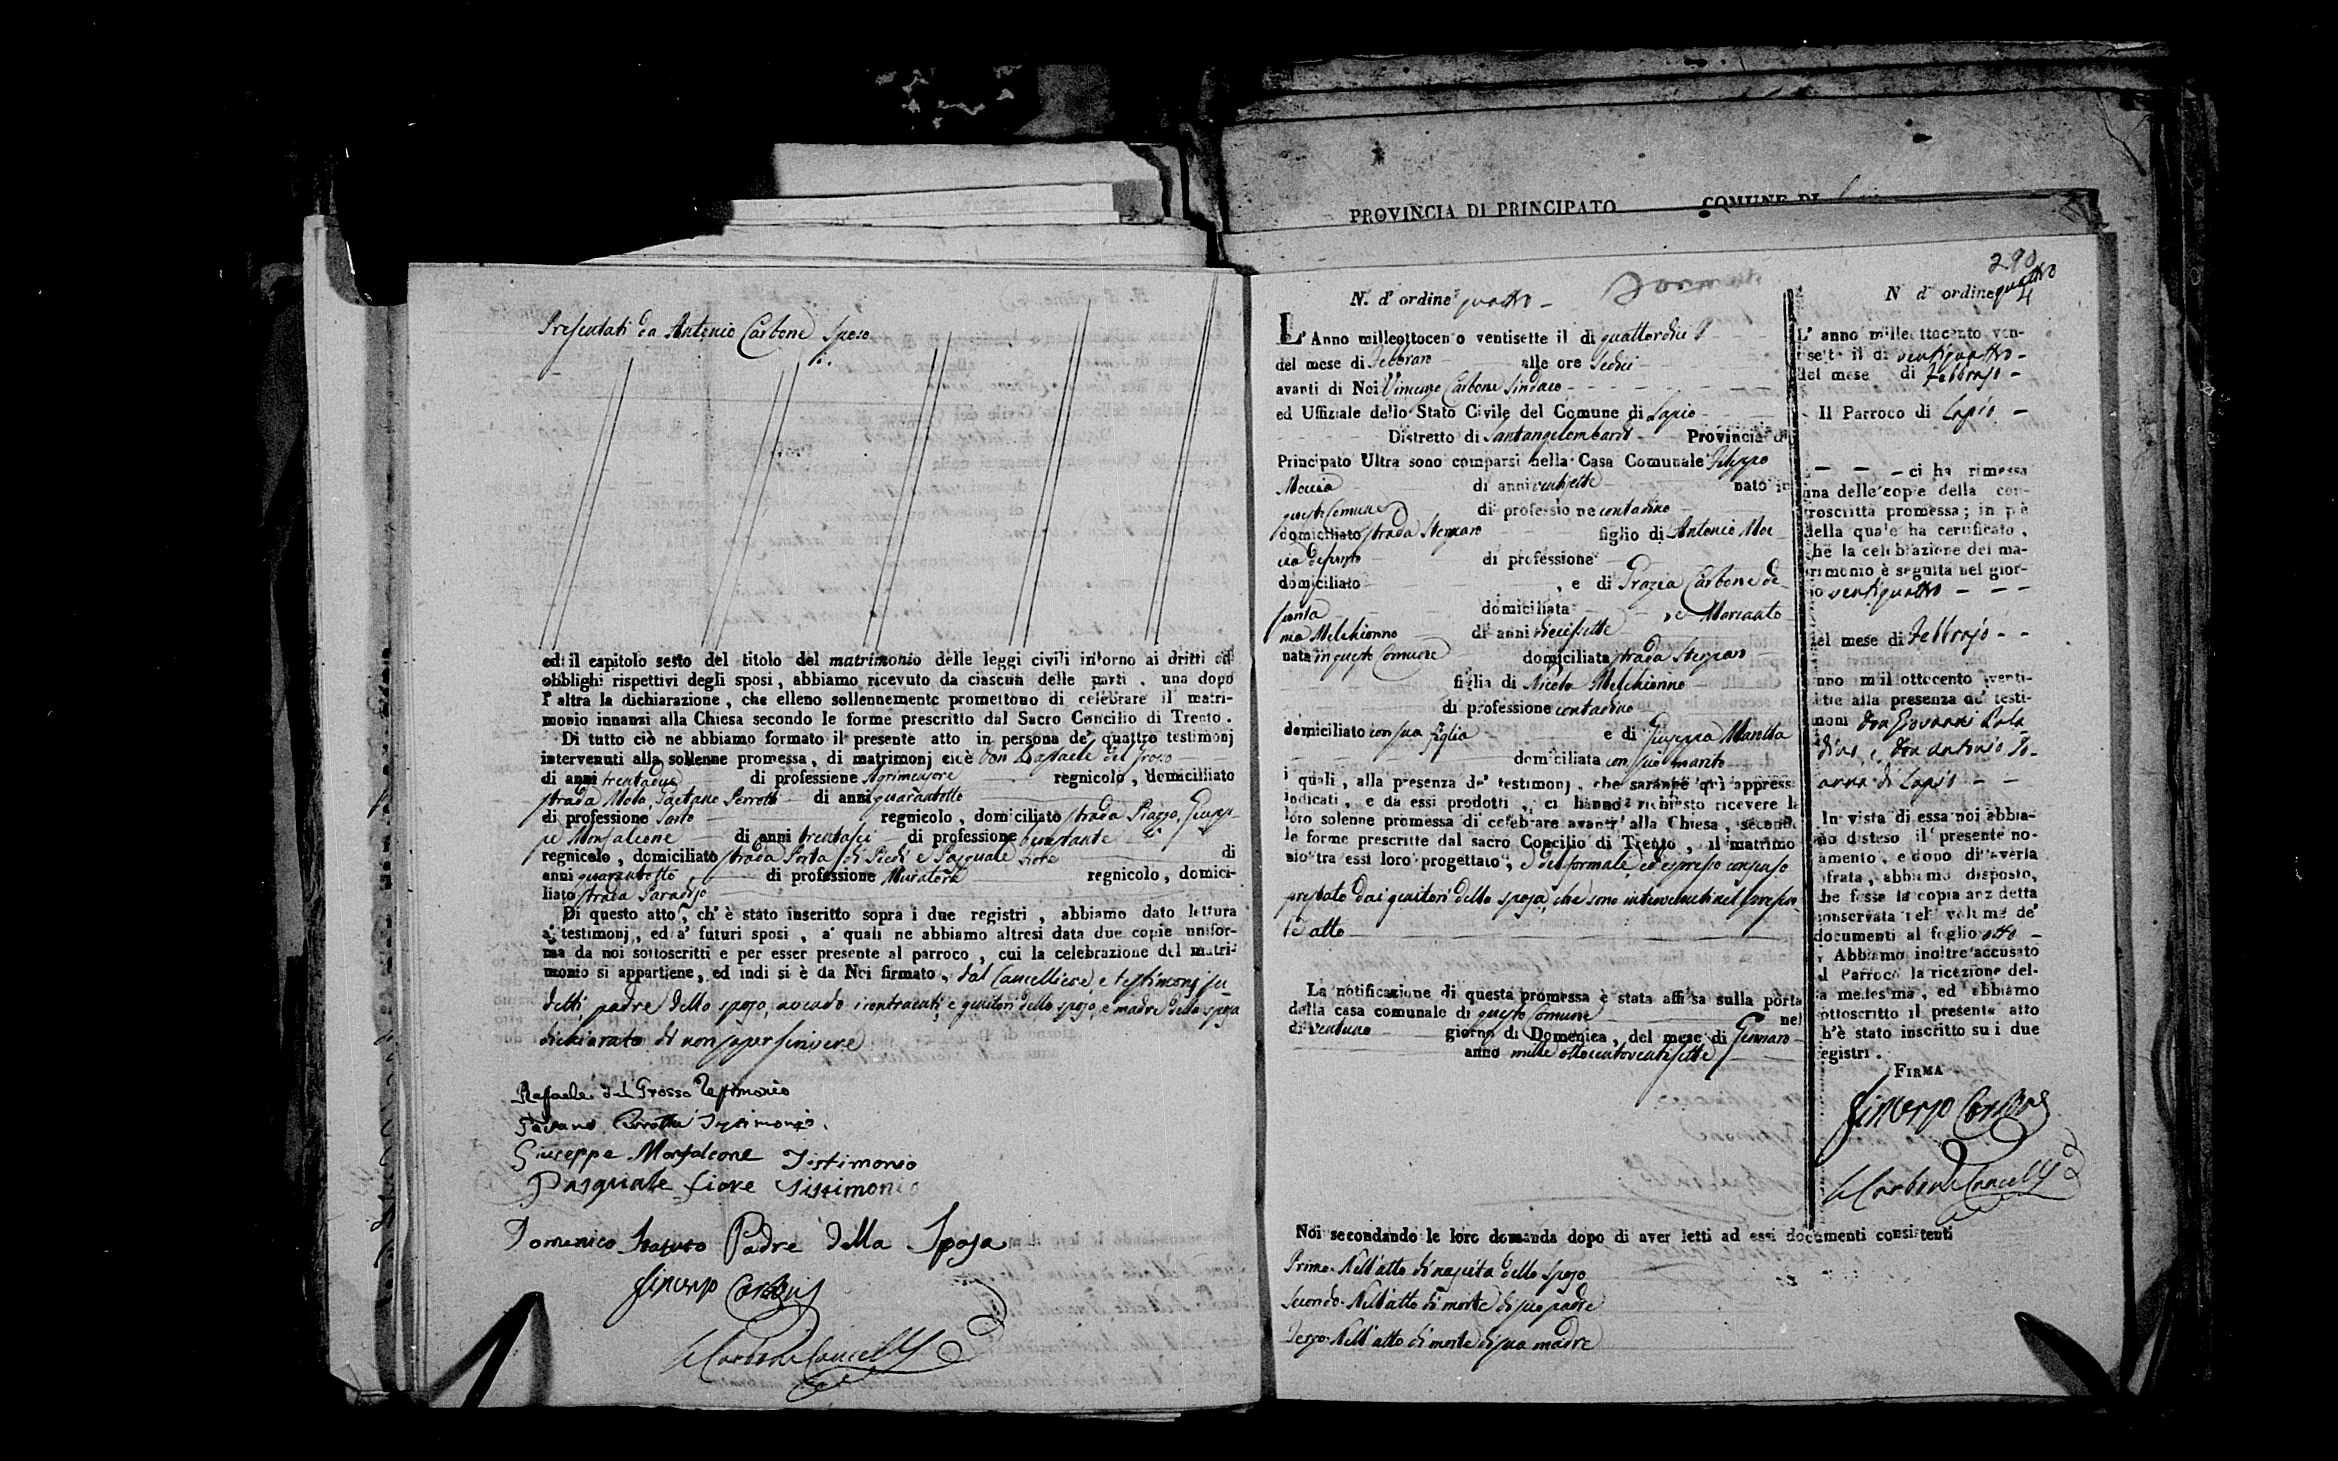 Presentati da Antonio Carbone Sposo
ed il capitolo sesto del titolo del matrimonio delle leggi civili intorno ai dritti ed
obblighi rispettivi degli sposi, abbiamo ricevuto da ciascun delle parti, una dopo
l'altra la dichiarazione, che elleno sollennemente promettono di celebrare il matri-
monio innanzi alla Chiesa secondo le forme prescritto dal Sacro Concilio di Trento.
Di tutto ciò ne abbiamo formato il presente atto in persona de' quattro testimonj
intervenuti alla sollenne promessa, di matrimonj cioè Don Raffaele del Grosso
di anni trentadue di professione Agrimensore regnicolo, domicilliato
strada Molo, Gaetano Perrotti di anni quarantotto
di professione Sarto regnicolo, domiciliato strada Piazzo, Giusep-
pe Monfalcone di anni trentasei di professione
regnicolo, domiciliato strada Porta di Piedi e Pasquale Fiore di
anni quarantotto di professione Muratore regnicolo, domici-
liato strada Paradiso
Di questo atto, ch'è stato inscritto sopra i due registri, abbiamo dato lettura
a' testimonj, ed a' futuri sposi, a' quali ne abbiamo altresi data due copie unifor-
ma da noi sottoscritti e per esser presente al parroco, cui la celebrazione del matri-
monio si appartiene, ed indi si è da Noi firmato, dal Cancelliere, e testimonj su
detti, padre dello sposo, avendo i contraenti, e genitori dello sposo, e madre della sposa
dichiarato di non saper scrivere
Raffaele del Grosso Testimonio
Gaetano Perrotti Testimonio
Giuseppe Monfalcone Testimonio
Pasquale Fiore Testimonio
Domenico Padre della Sposa
Vincenzo Carbone
Carbone Cancell
PROVINCIA DI PRINCIPATO COMUNE DI
290
N. d'ordine quattro
L'Anno milleottocento ventisette il di quattordici
del mese di Febbraro alle ore sedici
avanti di Noi Vincenzo Carbone Sindaco
ed Uffiziale dello Stato Civile del Comune di Lapio
Distretto di Santangelombardi Provincia di
Principato Ultra sono comparsi nella Casa Comunale Filippo
Moccia di anni ventisette nato in
questo Comune di professione contadino
domiciliato strada figlio di Antonio Moc
cia defunto di professione
domiciliato, e di Grazia Carbone de
funta domiciliata e Marianto
nia Melchionno di anni diecisette
nata in questo Comune domiciliata strada
figlia di Nicola Melchionno
di professione contadino
domiciliato con sua figlia e di Giuseppa
domiciliata con suo marito
i quali, alla presenza de' testimonj, che saranno quì appresso
indicati, e da essi prodotti, ci hanno richiesto ricevere la
loro solenne promessa di celebrare avanti alla Chiesa, secondo
le forme prescritte dal sacro Concilio di Trento, il matrimo
nio tra essi loro progettato, e del formale ed espresso consenso
prestato dai genitori della sposa, che sono intervenuti nel presen-
te atto
La notificazione di questa promessa è stata affissa sulla porta
della casa comunale di questo Comune nel
di ventuno giorno di Domenica, del mese di Gennaro
anno mille ottocentoventisette
Noi secondando le loro domanda dopo di aver letti ad essi documenti consistenti
Primo. Nell'atto di nascita dello sposo
Secondo. Nell'atto di morte di suo padre
Terzo. Nell'atto di morte di sua madre
N d'ordine quattro
4
L'anno milleottocento ven-
tisette il di ventiquattro
del mese di Febbrajo
Il Parroco di Lapio
ci ha rimessa
una delle copie della con-
troscritta promessa; in piè
della quale ha certificato,
che la celebrazione del ma-
trimonio è seguita nel gior-
no ventiquattro
del mese di Febbrajo
anno mill ottocento venti-
sette alla presenza de' testi-
moni don Giovanni
e don Antonio
di Lapio
In vista di essa noi abbia-
mo disteso il presente no-
tamento, e dopo di averla
cifrata, abbiamo disposto,
che fosse la copia anzidetta
conservata nel volume de'
documenti al foglio otto
Abbiamo inoltre accusato
al Parroco la ricezione del-
la medesima, ed abbiamo
sottoscritto il presente atto
ch'è stato inscritto su i due
registri.
FIRMA
Vincenzo Carbone
Carbone Cancell